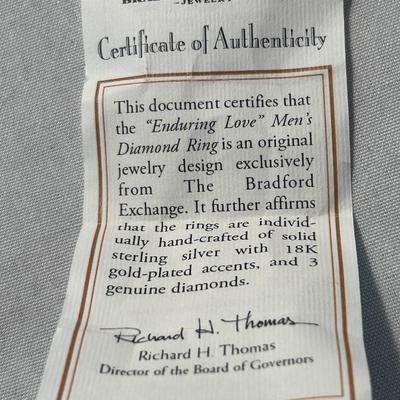 —JEWELRY—
Certificate of Authenticity
This document certifies that
the “Enduring Love” Men’s
Diamond Ring is an original
jewelry design exclusively
from The Bradford
Exchange. It further affirms
that the rings are individ-
ually hand-crafted of solid
sterling silver with 18K
gold-plated accents, and 3
genuine diamonds.
Richard H. Thomas
Richard H. Thomas
Director of the Board of Governors